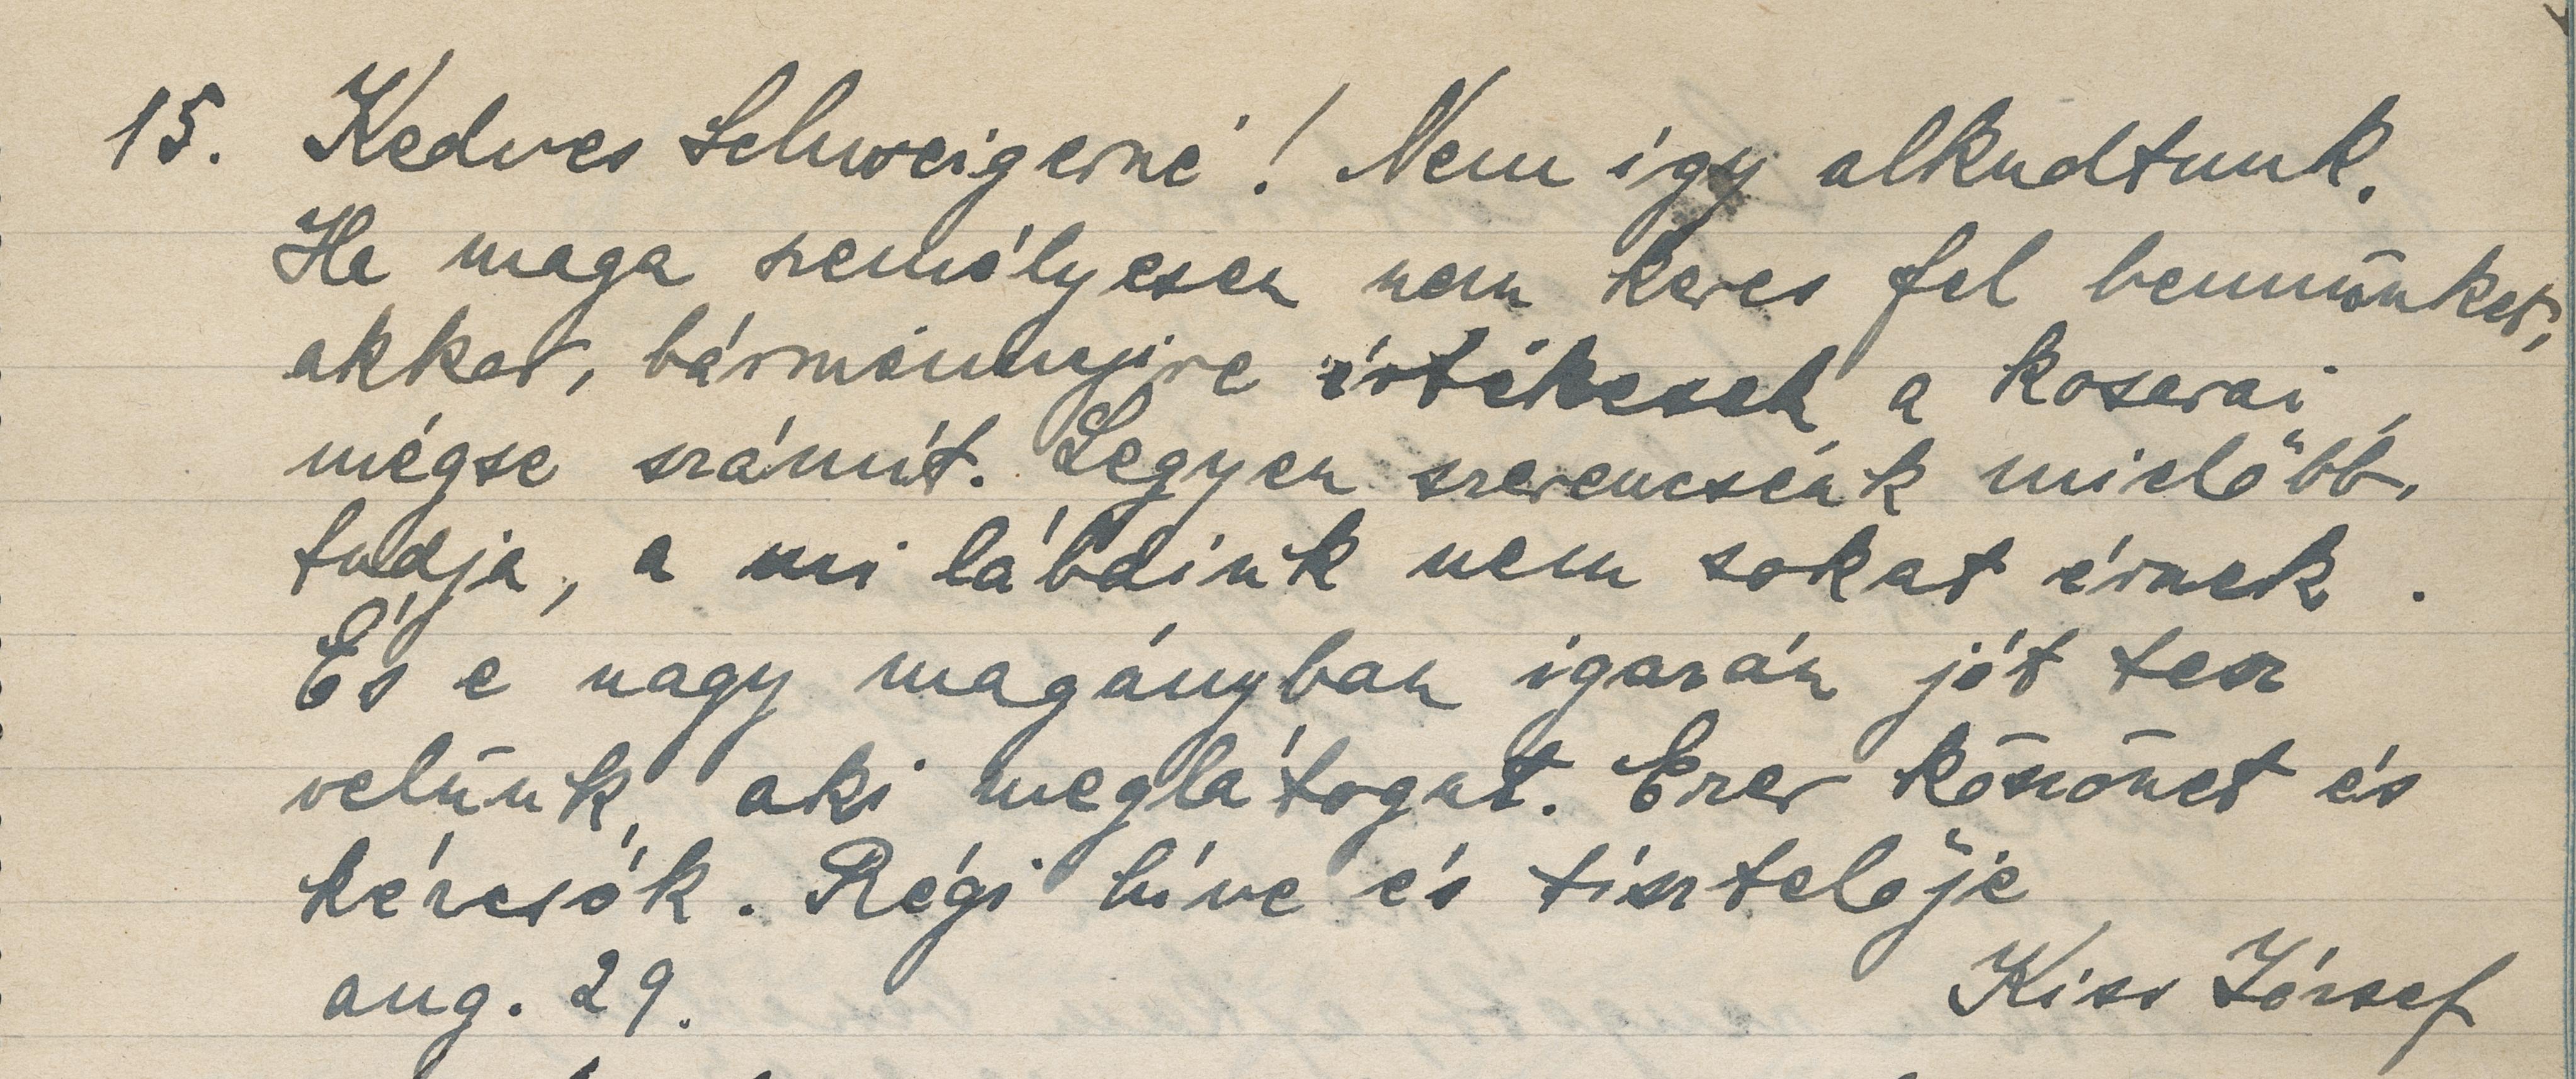 15. Kedves Schweigerné! Nem így alkudtunk.
Ha maga személyesen nem keres fel bennünket,
akkor, bármennyire értékesek a kosarai,
mégse számít. Legyen szerencsénk mielőbb,
tudja, a mi lábaink nem sokat érnek.
És e nagy magányban igazán jót tesz
velünk, aki meglátogat. Ezer köszönet és
kézcsók. Régi híve és tisztelője
Kiss József
aug. 29.